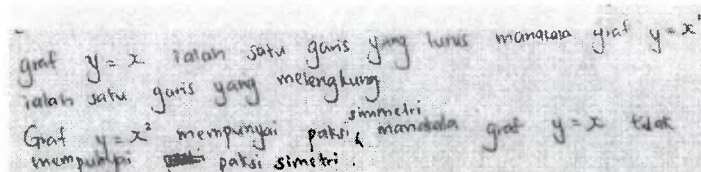 graf y = x ialah satu garis yang lurus manakala graf y = x²
ialah satu garis yang melengkung
Graf y = x² mempunyai paksi simmetri, manakala graf y = x tidak
mempunyai paksi simetri.